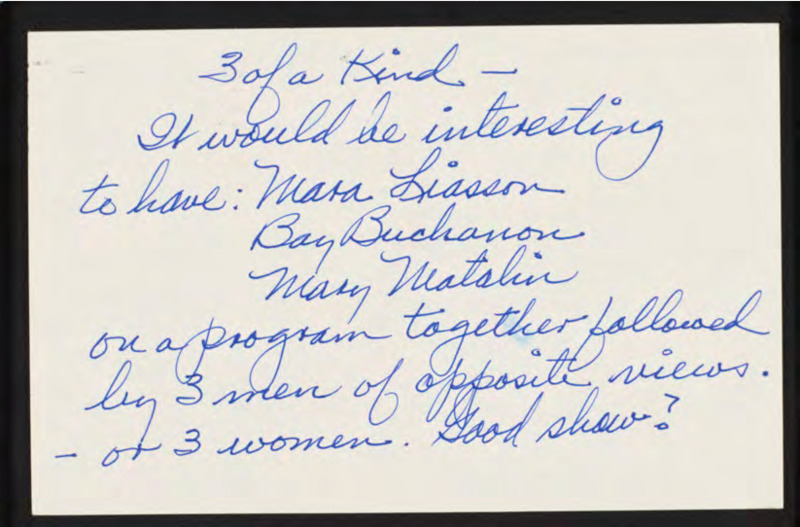 3 of a Kind —
It would be interesting
to have: Mara Liasson
Bay Buchanon
Mary Matalin
on a program together followed
by 3 men of opposite views.
- or 3 women. Good show?